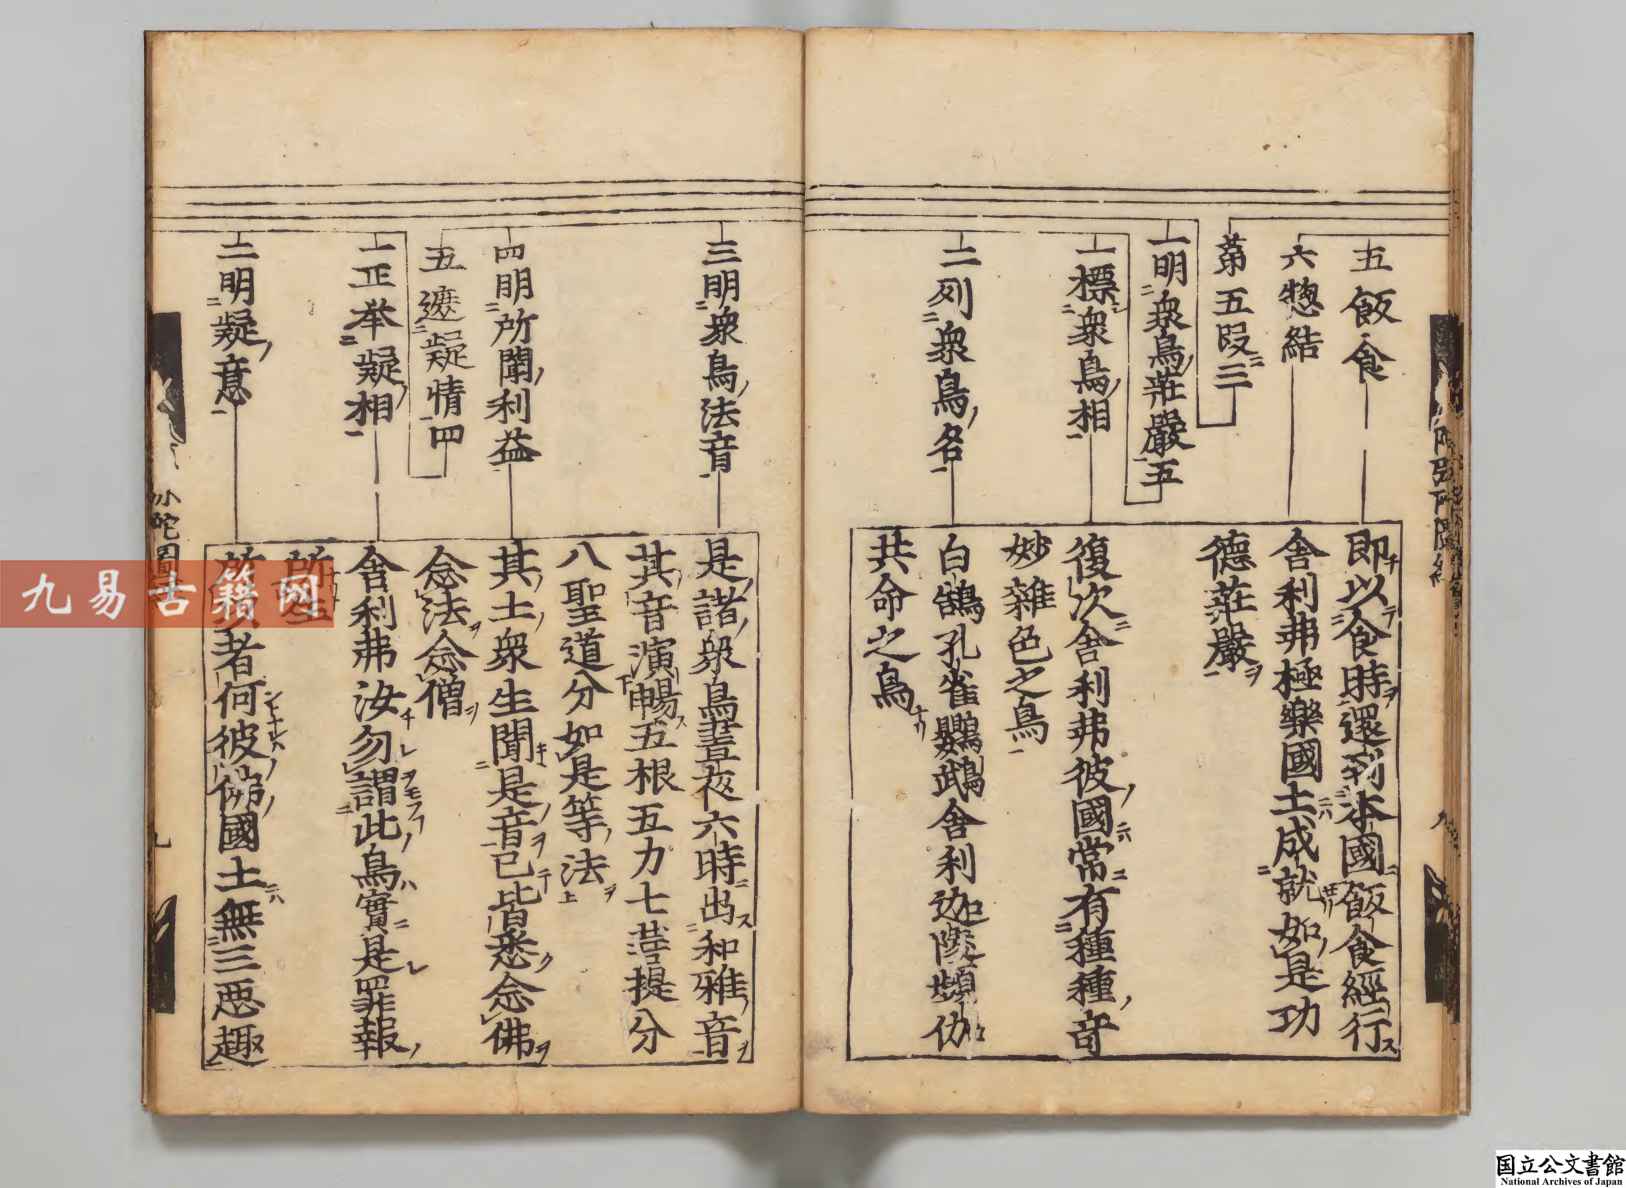 五飯食
六惣結
第五段三
一明衆鳥荘嚴五
一標衆鳥相
二列衆鳥名
即以食時還到本國飯食經行
舎利弗極樂國土成就如是功
德荘嚴
復次舎利弗彼國常有種種竒
妙雜色之鳥
白鵠孔雀鸚鵡舎利迦陵頻伽
共命之鳥
三明衆鳥法音
四明所聞利益
五遮疑情四
一正举疑相
二明疑意
是諸衆鳥晝夜六時出和雅音
其音演暢五根五力七菩提分
八聖道分如是等法
其土衆生聞是音已皆悉念佛
念法念僧
舎利弗汝勿謂此鳥實是罪報
所生
者何彼佛國土無三悪趣
九
九易古籍网
国立公文書館
National Archives of Japan